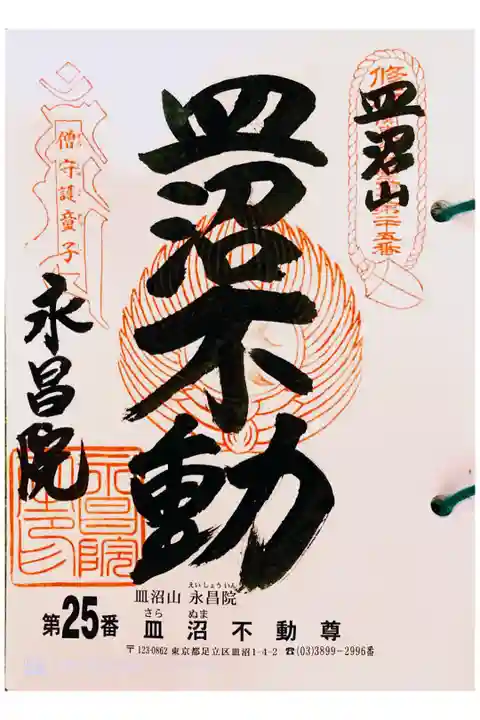 皿沼山
皿沼不動
僧守護童子
永昌院
えいしょういん
皿沼山 永昌院
さら ぬま
第25番 皿沼不動尊
〒123-0862 東京都足立区皿沼1-4-2 ☎(03)3899-2996番